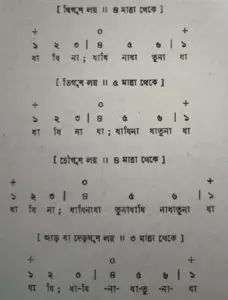 [ দ্বিগুণ লয় ॥ ৪ মাত্রা থেকে ]
+ o +
১ ২ ৩ | ৪ ৫ ৬ | ১
ধা ধি না ; ধাধি নাধা তুনা ধা
[ তিগুণ লয় ॥ ৫ মাত্রা থেকে ]
+ o +
১ ২ ৩ | ৪ ৫ ৬ | ১
ধা ধি না ; ধা ; ধাধিনা ধাতুনা ধা
[ চৌগুণ লয় ॥ ৪ মাত্রা থেকে ]
+ o +
১ ২ ৩ | ৪ ৫ ৬ | ১
ধা ধি না ; ধাধিনাধা তুনাধাধি নাধাতুনা ধা
[ আড় বা দেড়গুণ লয় ॥ ৩ মাত্রা থেকে ]
+ o +
১ ২ ৩ | ৪ ৫ ৬ | ১
ধা ধি ; ধা-ধি -না- ধা-তু -না- ধা